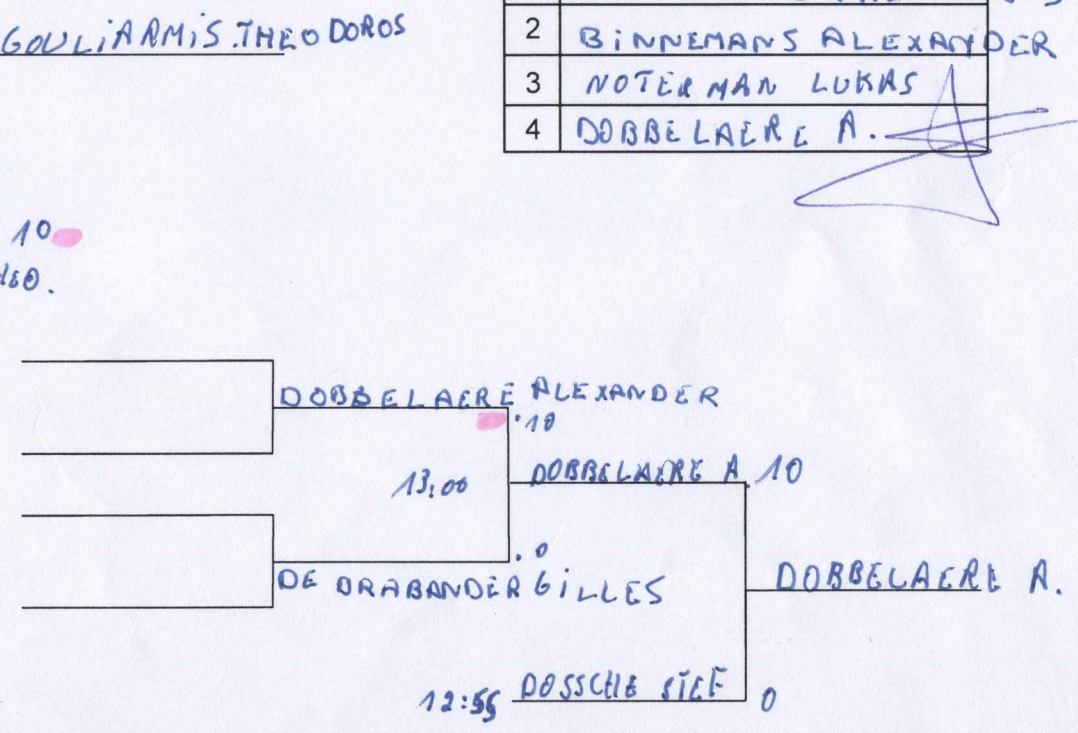 GOULIARMIS.THEODOROS
2 BINNEMANS ALEXANDER
3 NOTERMAN LUKAS
4 DOBBELAERE A.
10
DOBBELAERE ALEXANDER
.10
13:00
DOBBELAERE A 10
. 0
DE BRABANDER GILLES
DOBBELAERE A.
DOSSCHE
0